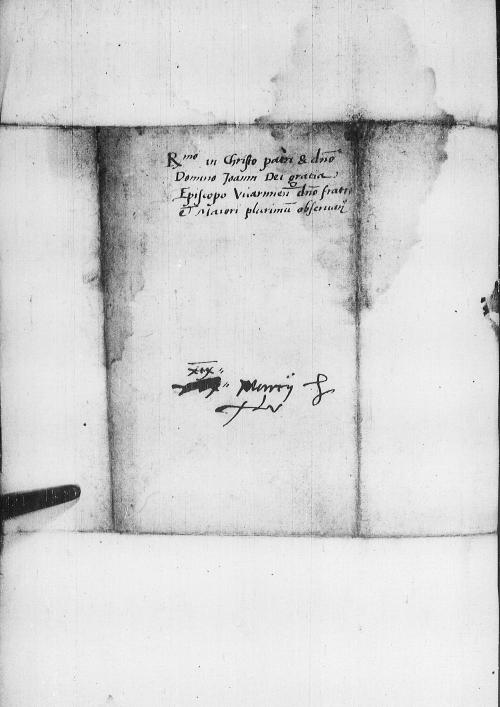 Rmo in Christo patri & dño
Domino Joanni Dei gratia
Episcopo Vuarmieñ dño fratri
et Maiori plurimũ obseruañ
xıx
Marcij
xlv